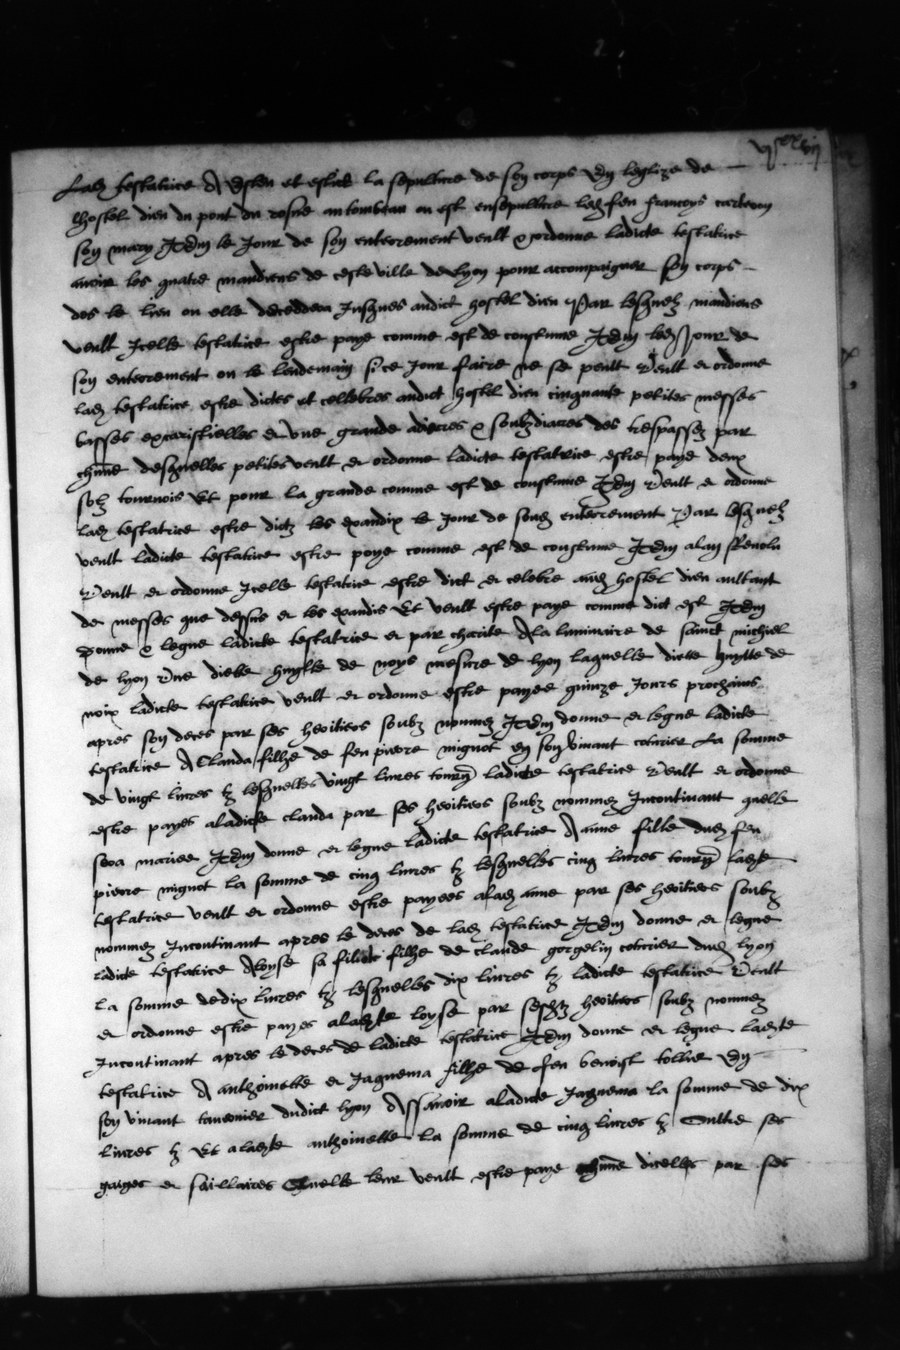 vj xx vij
Lad testatrice A Esleu et eslit la sepulture de son corps En leglize de
lhostel dieu du pont du rosne au tombeau ou est ensepulture led feu francoys
son mary Item le Jour de son enterrement veult & ordonne ladicte testatrice
avoir les quatre mandiens de ceste ville de Lyon pour accompaigner son corps
des le lieu ou elle decedera Jusques audict hostel dieu Par lesquelz mandiens
veult Icelle testatrice estre paye comme est de constume Item led Jour de
son enterrement ou le lendemain si ce Jour faire ne se peult Veult et ordonne
lad testatrice estre dictes et cellebres audict hostel dieu cinquante petites messes
basses et une grande a diacres & soubzdiacres des trespassez par
chune desquelles petites veult et ordonne ladicte testatrice estre paye deux
solz tournois Et pour la grande comme est de constume Item Veult et ordonne
lad testatrice estre dictz les exaudix le Jour de sond enterrement Par lesquelz
veult ladicte testatrice estre paye comme est de constume Item a lan Revolu
Veult et ordonne Icelle testatrice estre dict et celebre aud hostel dieu aultant
de messes que dessus et les exaudis Et veult estre paye comme dict est Item
donne & legue ladicte testatrice et par charite A la luminaire de sainct michiel
de lyon Une huylle de noys mesure de lyon laquelle huylle de
noix ladicte testatrice veult et ordonne estre payee quinze Jours prochains
apres son deces par ses heritiers soubz nommez Item donne et legue ladicte
testatrice A Clauda fillie de feu pierre mignot en son vivant La somme
de vingt livres tz lesquelles vingt livres tourn ladicte testatrice Veult et ordonne
estre payes a ladicte clauda par ses heritiers soubz nommez Incontinant quelle
sera mariee Item donne et legue ladicte testatrice A anne fille dud feu
pierre mignot la somme de cinq livres tz lesquelles cinq livres tourn ladte
testatrice veult et ordonne estre payees a lad anne par ses heritiers soubz
nommez Incontinant apres le deces de lad testatrice Item donne et legue
ladicte testatrice A loyse sa fillie de claude gorgelin dud lyon
La somme de dix livres tz lesquelles dix livres tz ladicte testatrice Veult
et ordonne estre payes a ladte loyse par sesd heritiers soubz nommez
Incontinant apres le deces de ladicte testatrice Item donne et legue ladte
testatrice A anthoinette et Jaquema fillie de feu benoist En
son vivant dudict lyon Assavoir a ladicte Jaquema la somme de dix
livres tz Et a ladte anthoinette la somme de cinq livres tz Oultre ses
gaiges et sallaires Quelle leur veult estre paye chune dicelles par ses